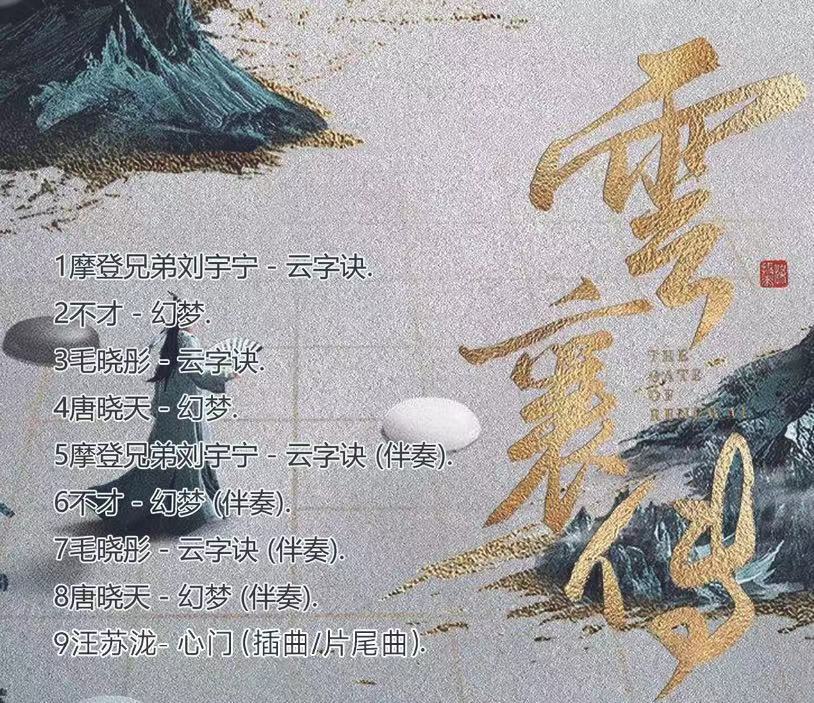 雲襄傳
THE
GATE
OF
RENEWAL
1摩登兄弟刘宇宁 - 云字诀.
2不才 - 幻梦.
3毛晓彤 - 云字诀.
4唐晓天 - 幻梦.
5摩登兄弟刘宇宁 - 云字诀 (伴奏).
6不才 - 幻梦 (伴奏).
7毛晓彤 - 云字诀 (伴奏).
8唐晓天 - 幻梦 (伴奏).
9汪苏泷- 心门 (插曲/片尾曲).